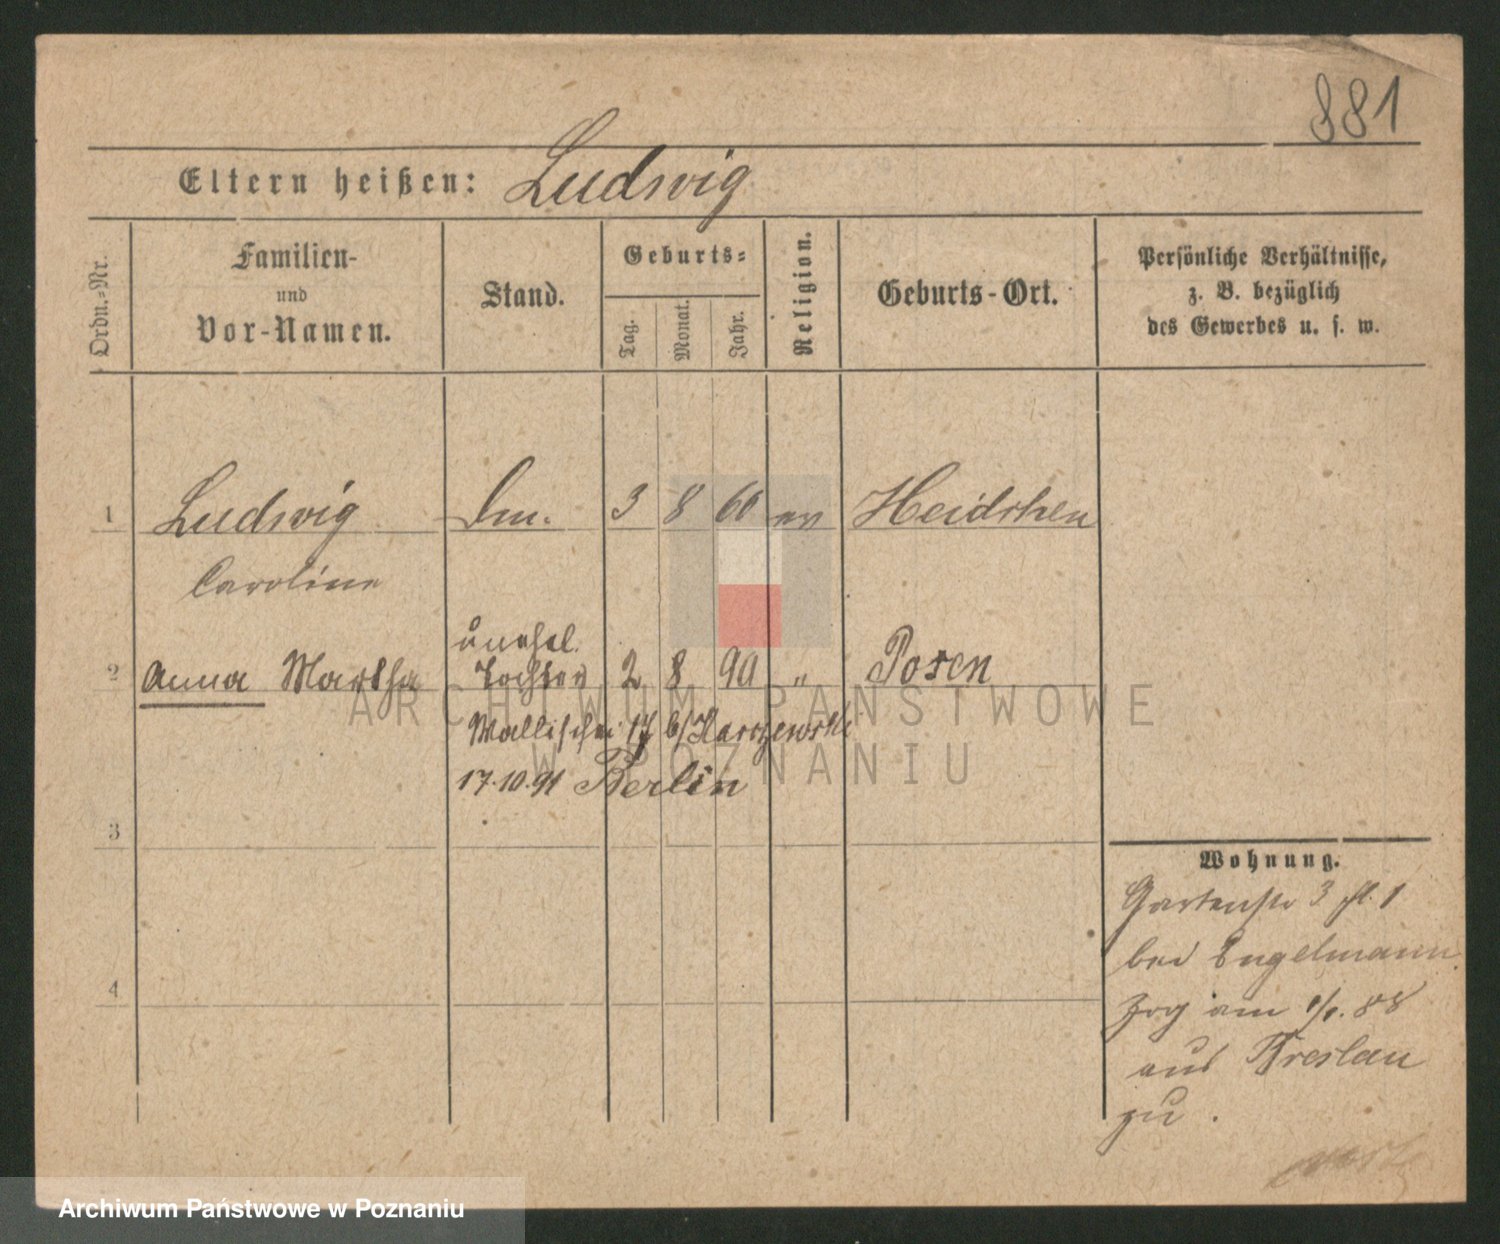 881
Eltern heißen: Ludwig
Ordn.-Nr.
Familien-
und
Vor-Namen.
Stand.
Geburts-
Tag.
Monat.
Jahr.
Religion.
Geburts-Ort.
Persönliche Verhältnisse,
z. B. bezüglich
des Gewerbes u. s. w.
1 Ludwig 3 8 60 ev Heidchen
Caroline
unehel.
2 Anna Martha Tochter 2 8 90 " Posen
Wallischei 17 b/Karczewski
17.10.91 Berlin
3
4
Wohnung.
Gartenstr 3 1
bei Engelmann
zog am 88
aus Breslau
zu.
ARCHIWUM PAŃSTWOWE
W POZNANIU
Archiwum Państwowe w Poznaniu